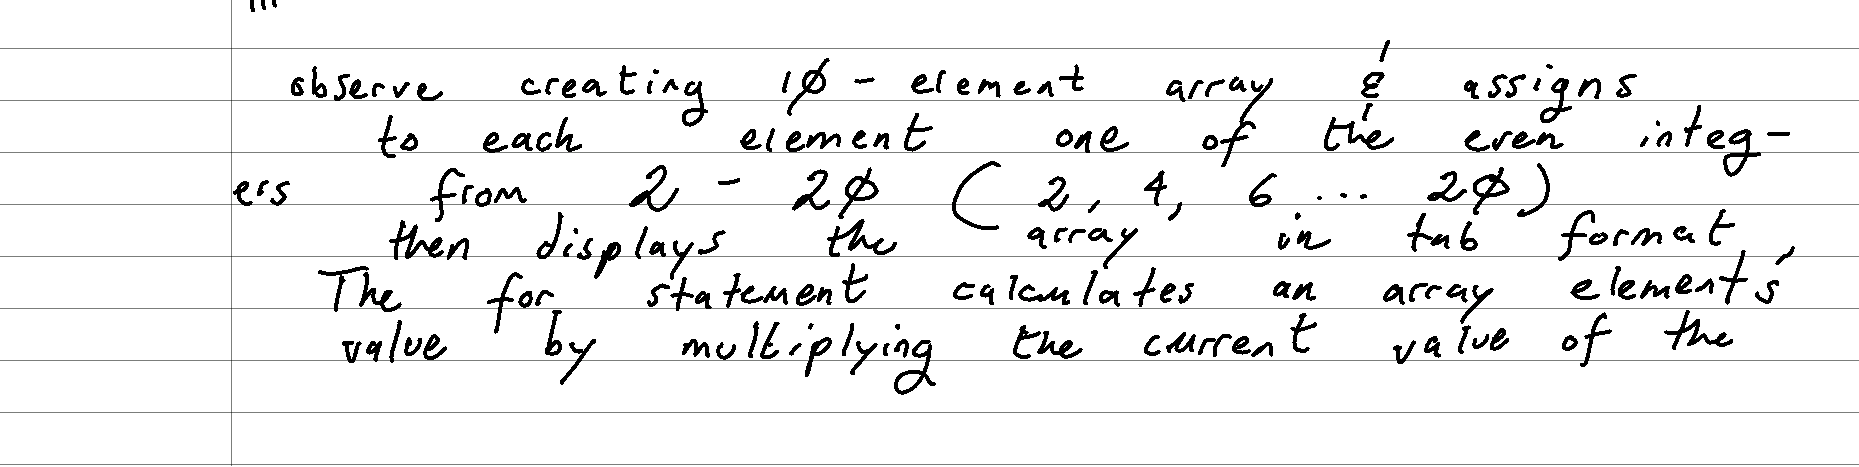 observe creating 10-element array & assigns
to each element one of the even integ-
ers from 2 - 20 (2, 4, 6 ... 20)
then displays the array in tab format
The for statement calculates an array element's
value by multiplying the current value of the